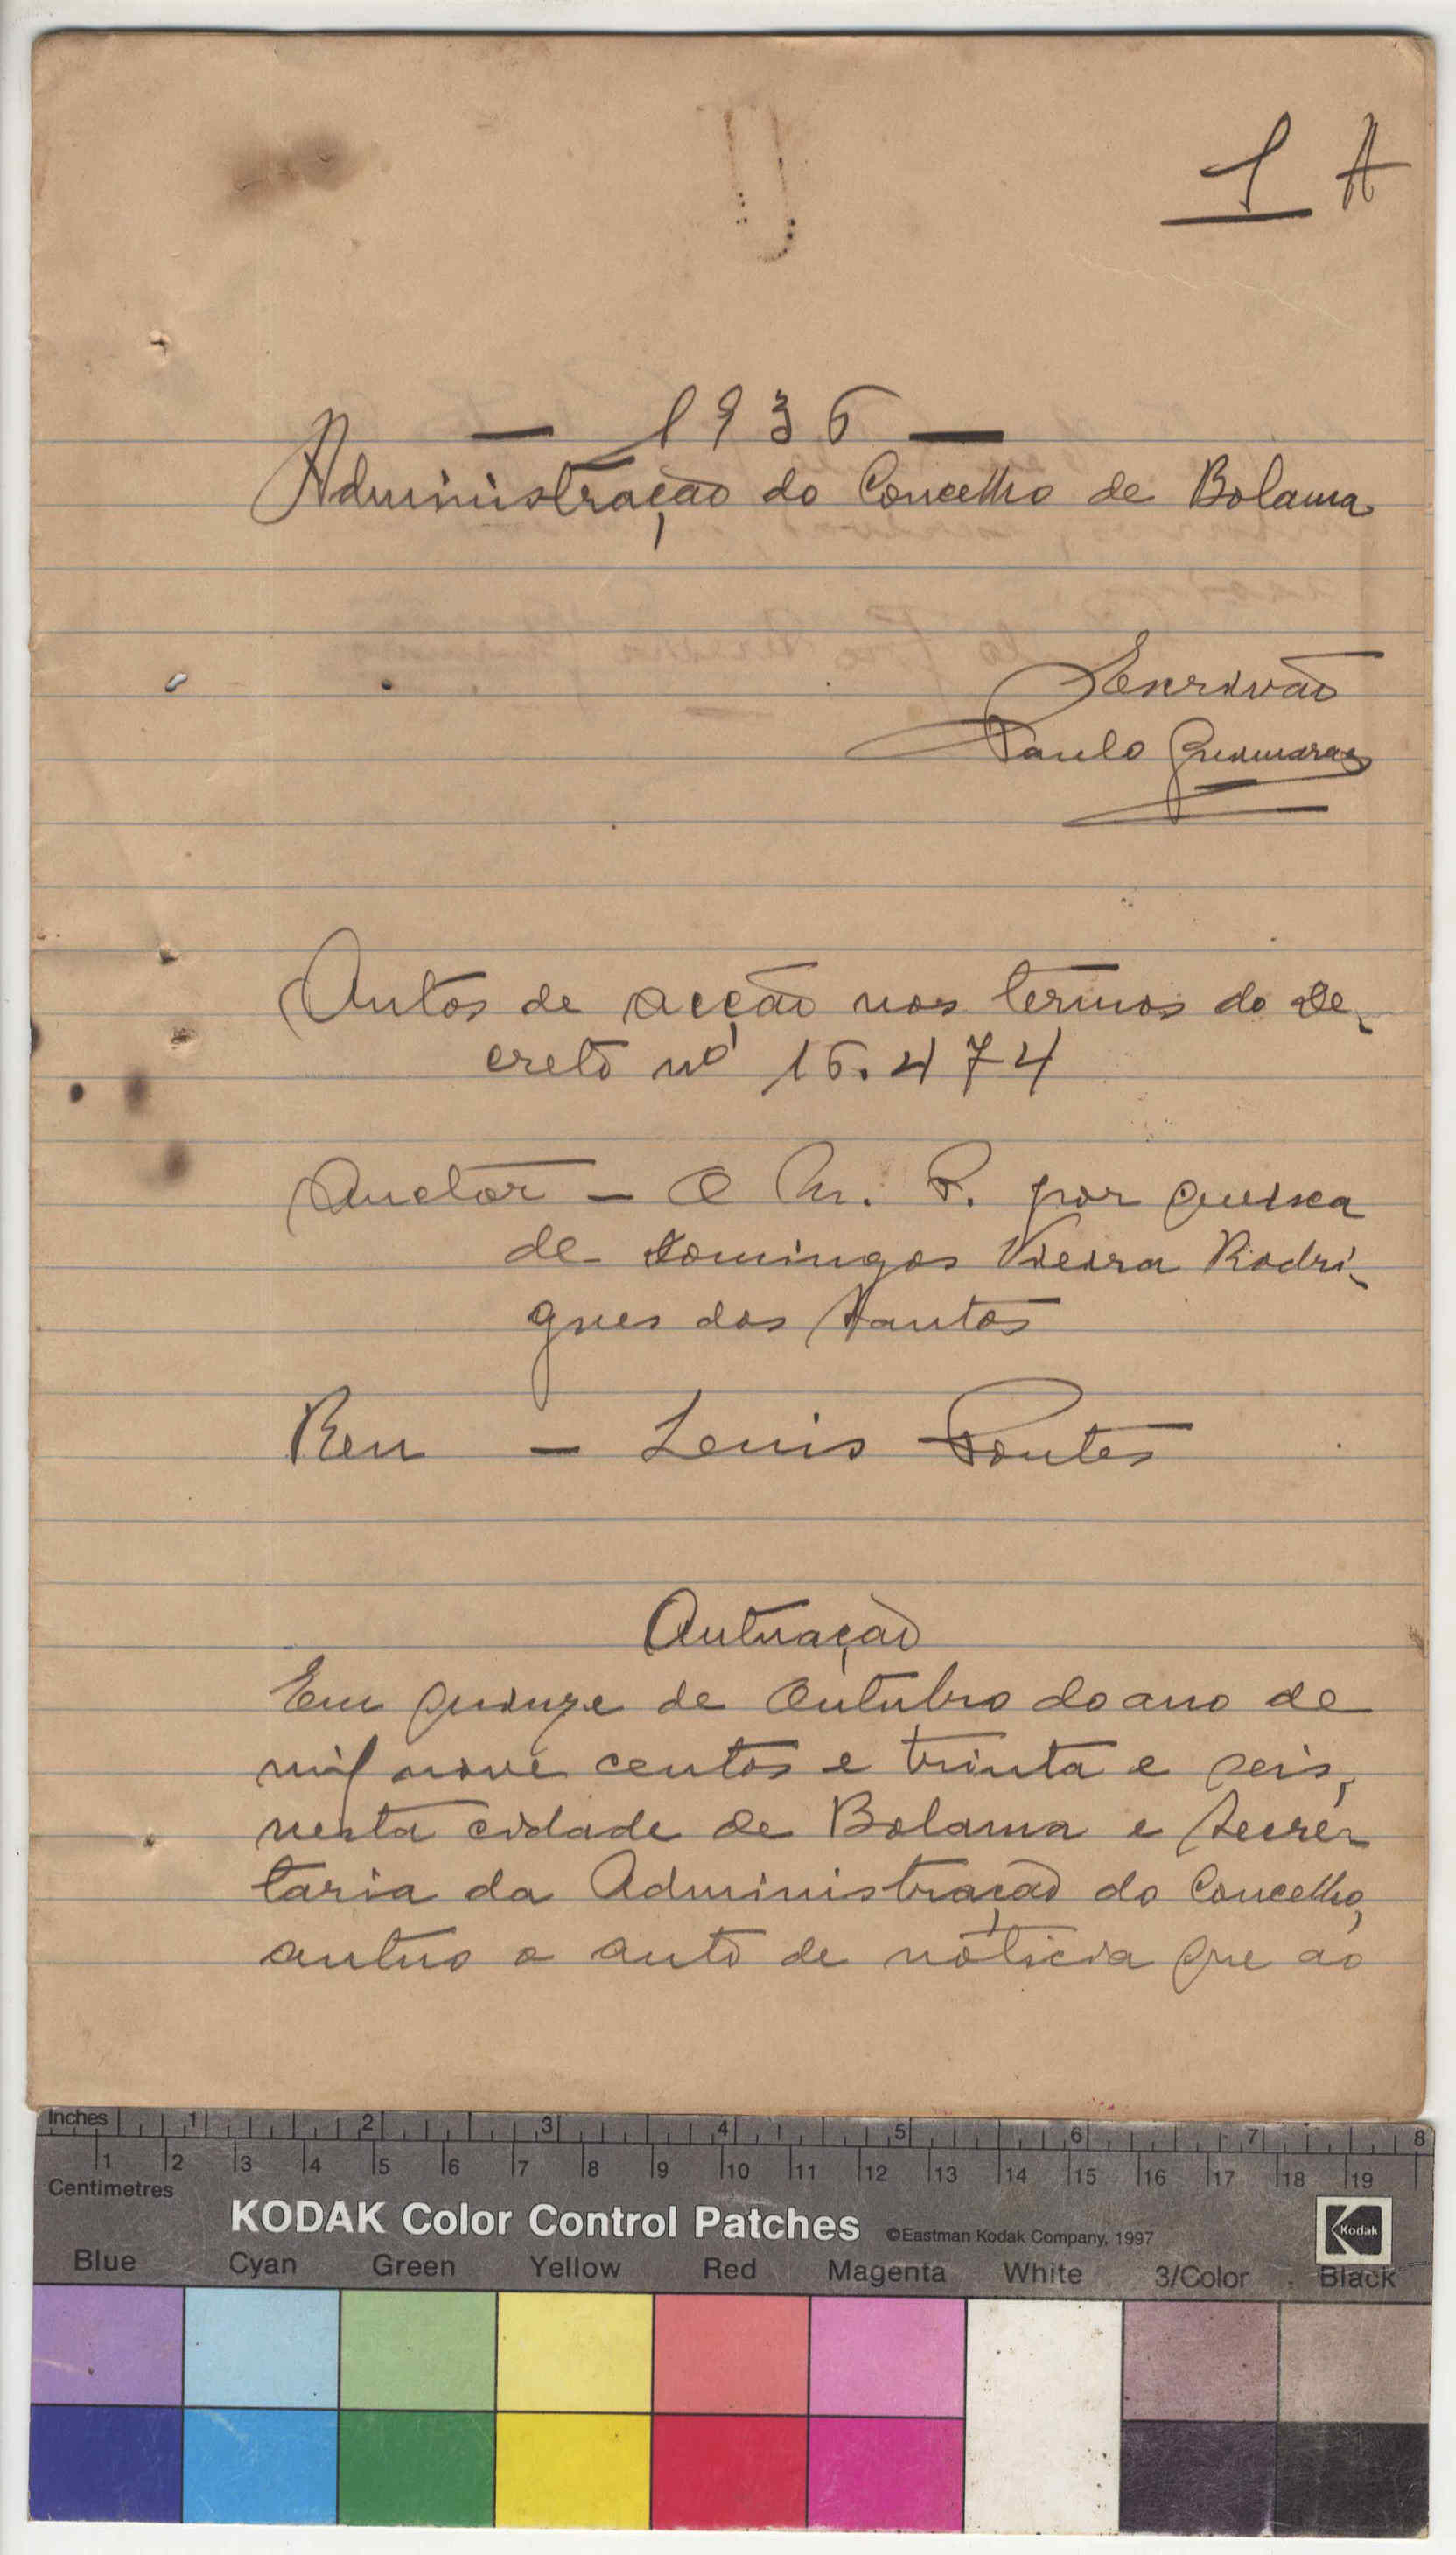 1 A
— 1936 —
Administração do Concelho de Bolama
Escrivão
Paulo Guimarães
Autos de acção nos termos do De-
creto nº 16.474
Auctor — O M. P. por queixa
de Domingos Vieira Rodri-
gues dos Santos
Reu — Luis Pontes
Autuação
Em quinze de Outubro do ano de
mil nove centos e trinta e seis,
nesta cidade de Bolama e Secre-
taria da Administração do Concelho,
autuo o auto de nóticia que ao
Inches 1 2 3 4 5 6 7 8
1 2 3 4 5 6 7 8 9 10 11 12 13 14 15 16 17 18 19
Centimetres
KODAK Color Control Patches ©Eastman Kodak Company, 1997 Kodak
Blue Cyan Green Yellow Red Magenta White 3/Color Black